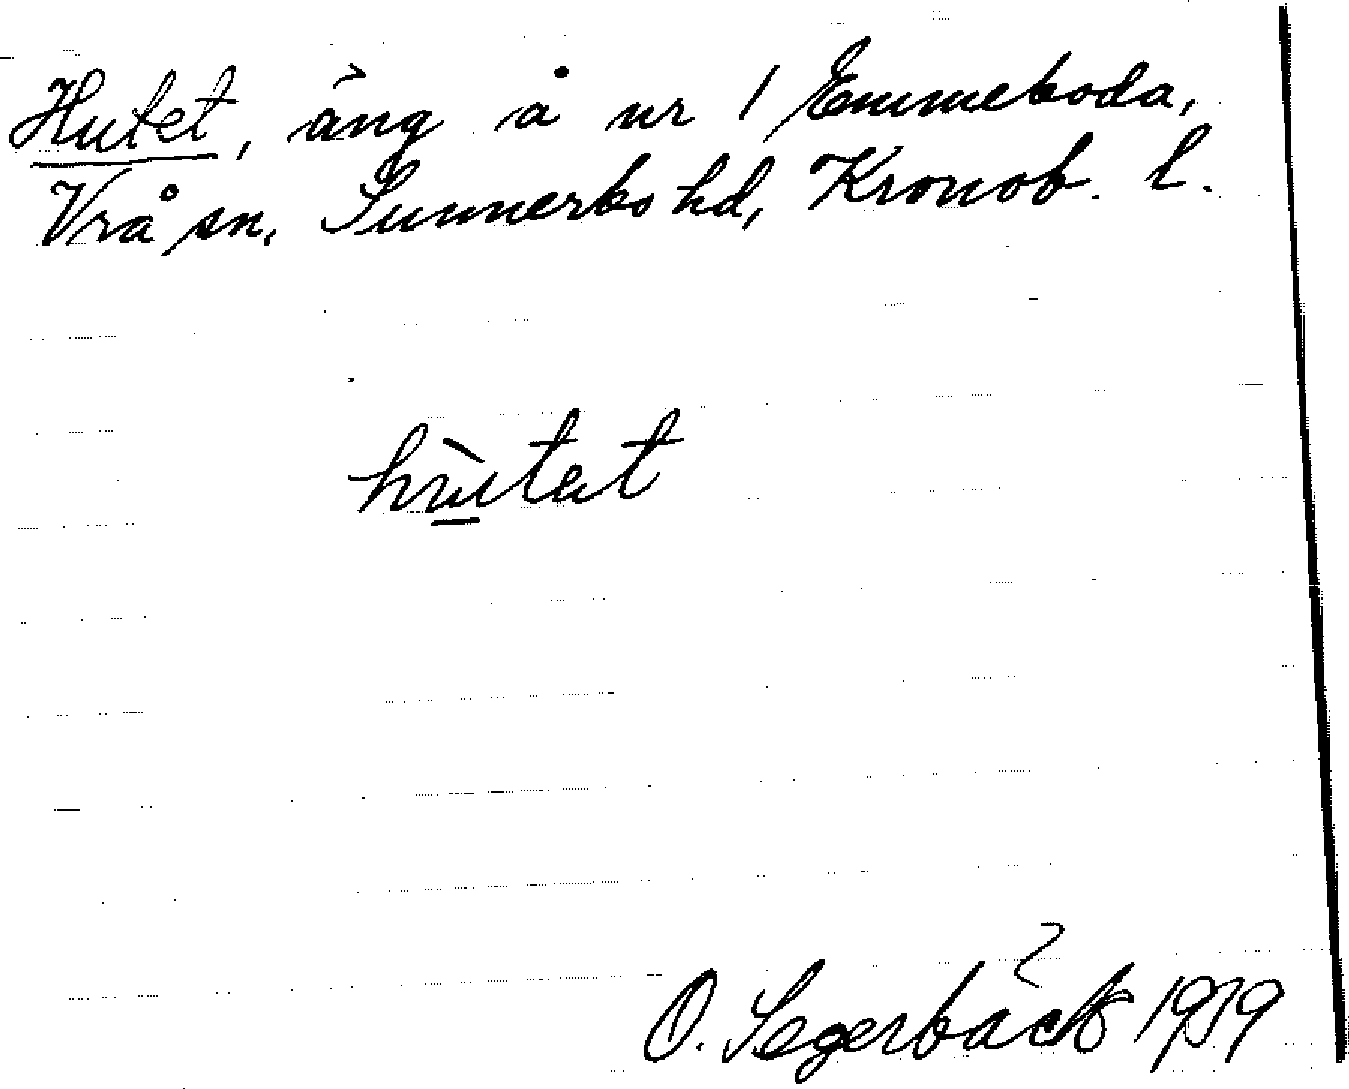 Hutet, äng å nr 1 Emmeboda,
Vrå sn, Sunnerbo hd, Kronob. l.
hùtat
O. Segerbäck 1919